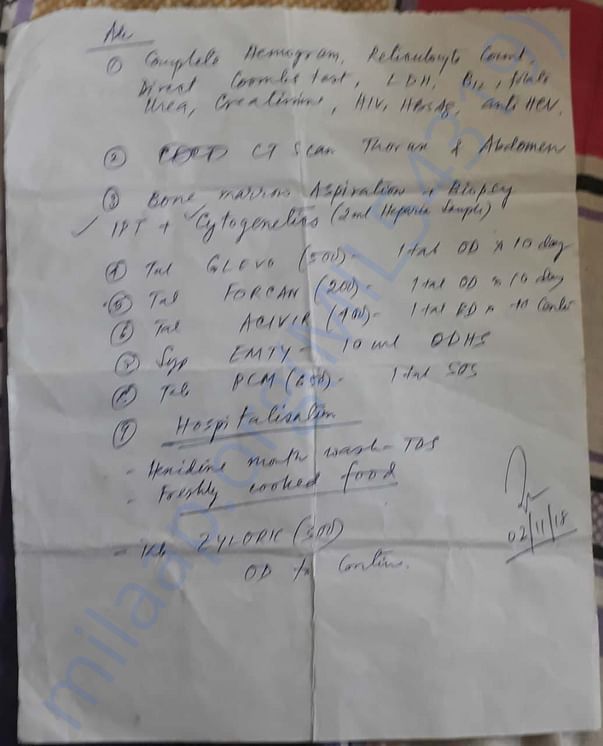 Adv
① Complete Hemogram, Reticulocyte Count,
Direct Coombs test, LDH, B12, folate
Urea, Creatinine, HIV, HBsAg, anti HCV.
② CT Scan Thorax & Abdomen
③ Bone marrow Aspiration & Biopsy
✓ IPT + ✓ Cytogenetics (2ml Heparin Sample)
④ Tab GLEVO (500) - 1 tab OD x 10 day
⑤ Tab FORCAN (200) - 1 tab OD x 10 day
⑥ Tab ACIVIR (400) - 1 tab BD x to Contin
⑦ Syp EMTY - 10 ml OD HS
⑧ Tab PCM (650) - 1 tab SOS
⑨ Hospitalisation
- Henidine mouth wash - TDS
- Freshly cooked food
- Tab ZYLORIC (300)
OD to Contin.
02/11/18
milaap.org(MIL54319)